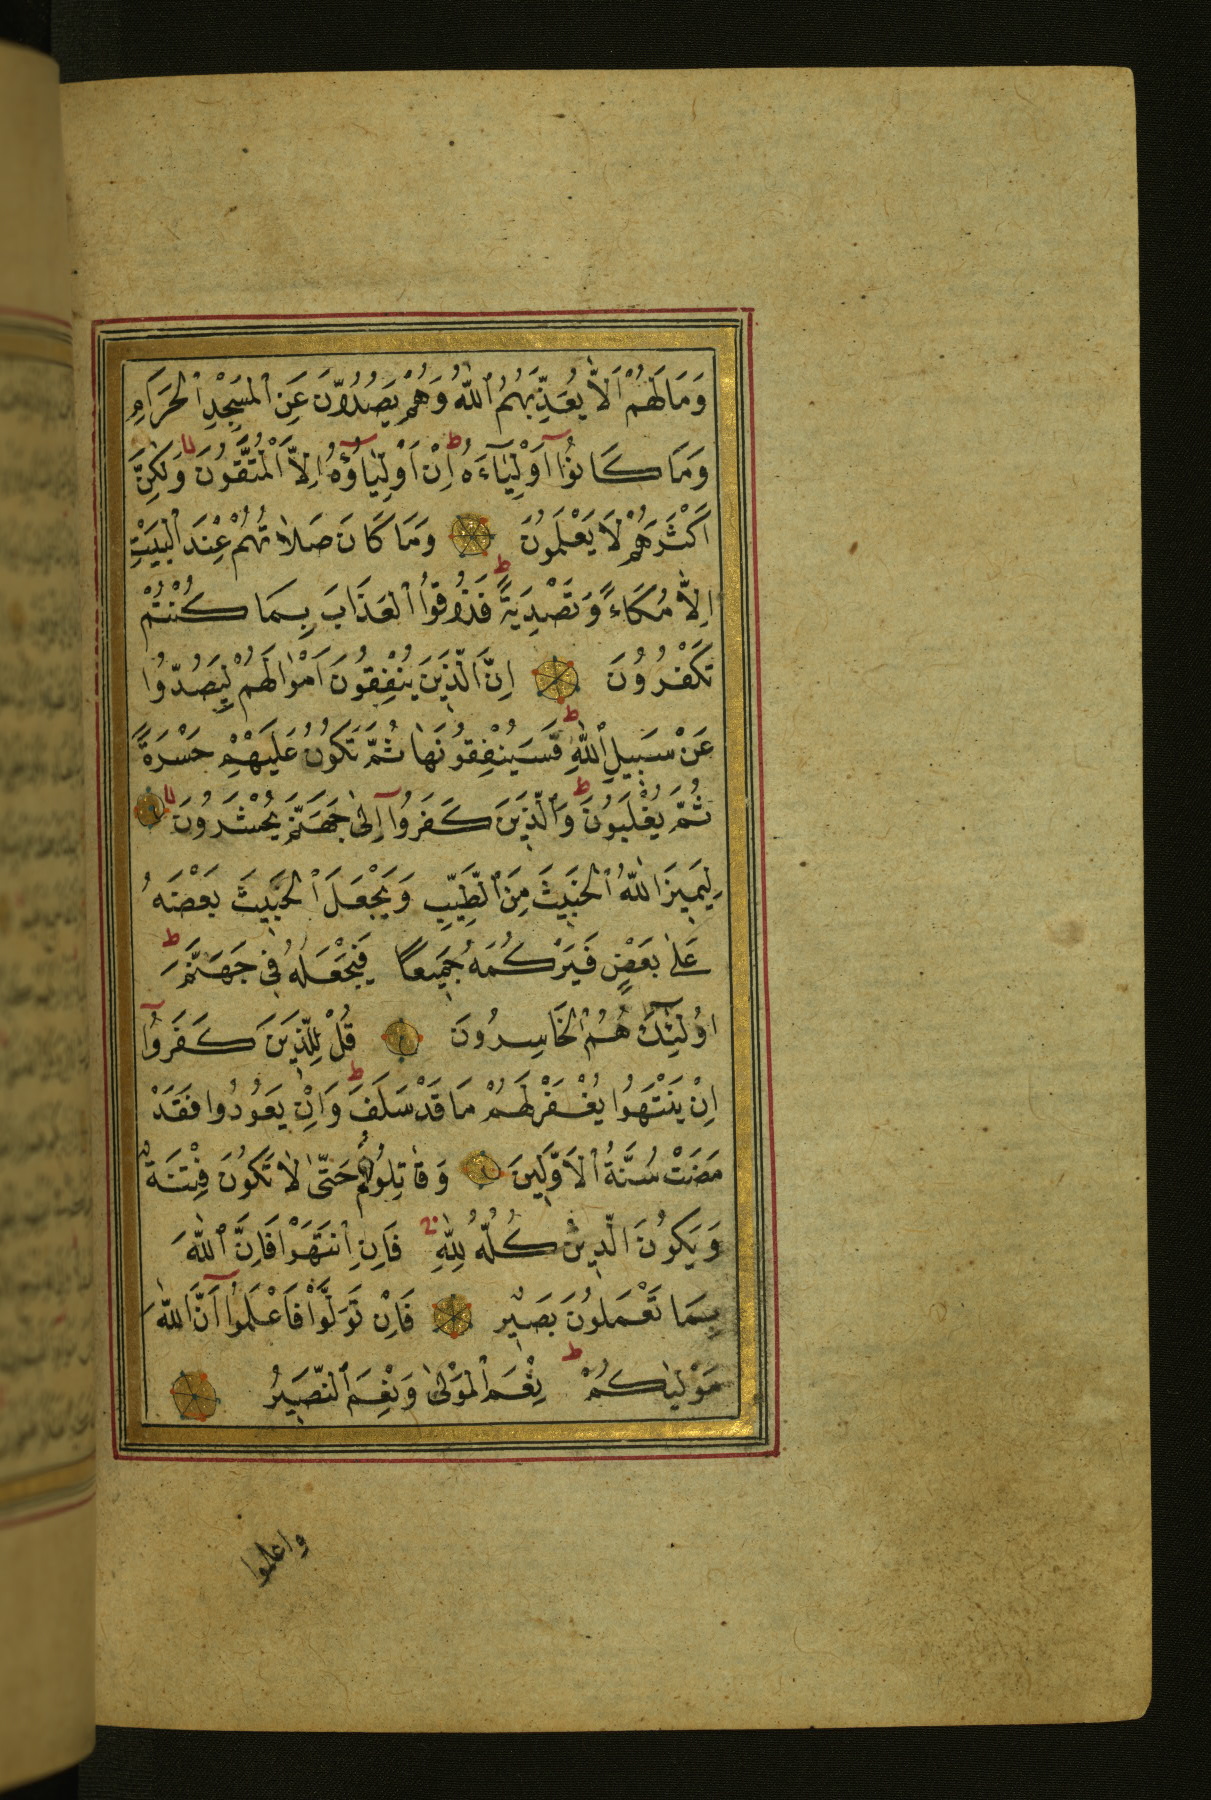 وَمَا لَهُمْ اَلَّا يُعَذِّبَهُمُ ٱللّٰهُ وَهُمْ يَصُدُّونَ عَنِ ٱلْمَسْجِدِ ٱلْحَرَامِ
وَمَا كَانُوٓا اَوْلِيَآءَهُ ط اِنْ اَوْلِيَاؤُٓهُ اِلَّا ٱلْمُتَّقُونَ لا وَلٰكِنَّ
اَكْثَرَهُمْ لَا يَعْلَمُونَ وَمَا كَانَ صَلَاتُهُمْ عِنْدَ ٱلْبَيْتِ
اِلَّا مُكَاءً وَتَصْدِيَةً ط فَذُوقُوا ٱلْعَذَابَ بِمَا كُنْتُمْ
تَكْفُرُونَ اِنَّ ٱلَّذِينَ يُنْفِقُونَ اَمْوَالَهُمْ لِيَصُدُّوا
عَنْ سَبِيلِ ٱللّٰهِ ط فَسَيُنْفِقُونَهَا ثُمَّ تَكُونُ عَلَيْهِمْ حَسْرَةً
ثُمَّ يُغْلَبُونَ ط وَٱلَّذِينَ كَفَرُوٓا اِلٰى جَهَنَّمَ يُحْشَرُونَ لا
لِيَمِيزَ ٱللّٰهُ ٱلْخَبِيثَ مِنَ ٱلطَّيِّبِ وَيَجْعَلَ ٱلْخَبِيثَ بَعْضَهُ
عَلٰى بَعْضٍ فَيَرْكُمَهُ جَمِيعًا فَيَجْعَلَهُ فِى جَهَنَّمَ ط
اُولٰٓئِكَ هُمُ ٱلْخَاسِرُونَ قُلْ لِلَّذِينَ كَفَرُوٓا
اِنْ يَنْتَهُوا يُغْفَرْ لَهُمْ مَا قَدْ سَلَفَ ط وَاِنْ يَعُودُوا فَقَدْ
مَضَتْ سُنَّةُ ٱلْاَوَّلِينَ وَقَاتِلُوهُمْ حَتّٰى لَا تَكُونَ فِتْنَةٌ
وَيَكُونَ ٱلدِّينُ كُلُّهُ لِلّٰهِ فَاِنِ ٱنْتَهَوْا فَاِنَّ ٱللّٰهَ
بِمَا تَعْمَلُونَ بَصِيرٌ فَاِنْ تَوَلَّوْا فَاعْلَمُوٓا اَنَّ ٱللّٰهَ
مَوْلٰيكُمْ ط نِعْمَ ٱلْمَوْلٰى وَنِعْمَ ٱلنَّصِيرُ
واعلموا